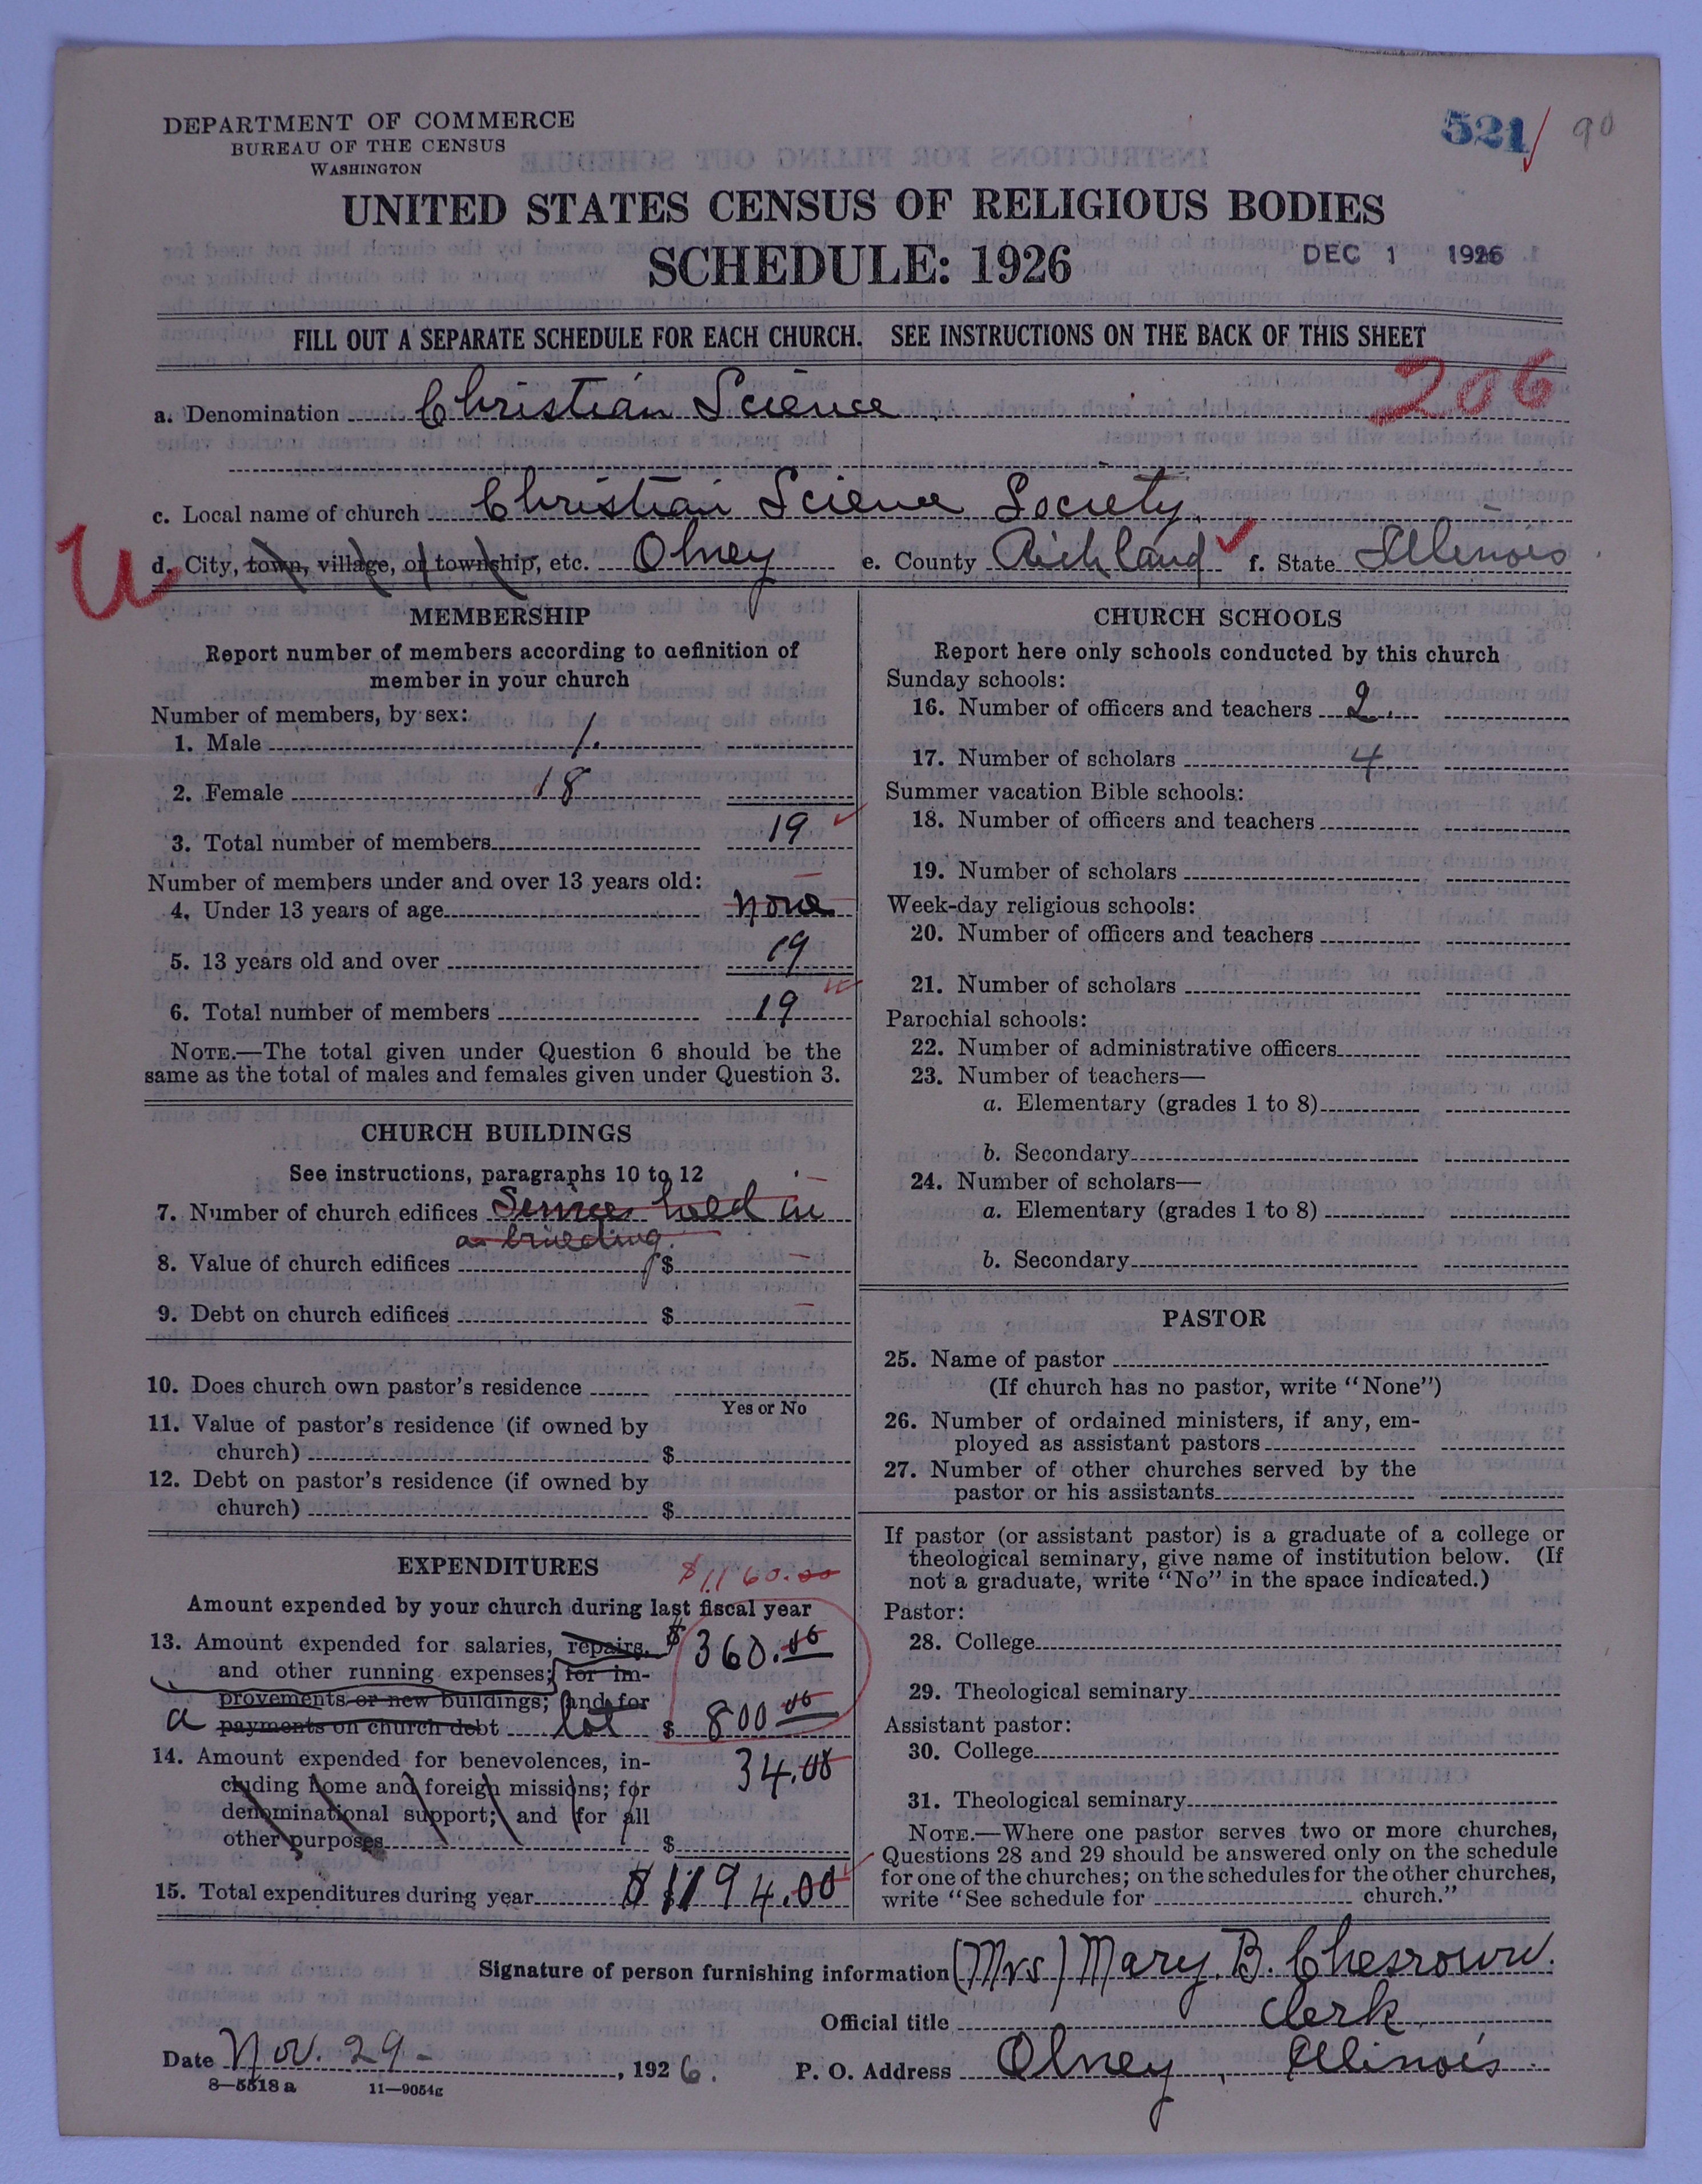 DEPARTMENT OF COMMERCE
BUREAU OF THE CENSUS
WASHINGTON
521 90
UNITED STATES CENSUS OF RELIGIOUS BODIES
SCHEDULE: 1926
DEC 1 1926
FILL OUT A SEPARATE SCHEDULE FOR EACH CHURCH. SEE INSTRUCTIONS ON THE BACK OF THIS SHEET
206
a. Denomination Christian Science
c. Local name of church Christian Science Society.
U
d. City, town, village, or township, etc. Olney e. County Richland f. State Illinois
MEMBERSHIP
Report number of members according to definition of
member in your church
Number of members, by sex:
1. Male 1.
2. Female 18
3. Total number of members 19
Number of members under and over 13 years old:
4. Under 13 years of age none
5. 13 years old and over 19
6. Total number of members 19
NOTE.—The total given under Question 6 should be the
same as the total of males and females given under Question 3.
CHURCH BUILDINGS
See instructions, paragraphs 10 to 12
7. Number of church edifices Services held in
a building.
8. Value of church edifices $
9. Debt on church edifices $
10. Does church own pastor's residence
Yes or No
11. Value of pastor's residence (if owned by
church) $
12. Debt on pastor's residence (if owned by
church) $
EXPENDITURES
$1160.00
Amount expended by your church during last fiscal year
13. Amount expended for salaries, repairs, $360.00
and other running expenses; for im-
provements or new buildings; and for
a payments on church debt lot $ 800 00
14. Amount expended for benevolences, in- 34.00
cluding home and foreign missions; for
denominational support; and for all
other purposes $
15. Total expenditures during year $1194.00
CHURCH SCHOOLS
Report here only schools conducted by this church
Sunday schools:
16. Number of officers and teachers 2.
17. Number of scholars 4.
Summer vacation Bible schools:
18. Number of officers and teachers
19. Number of scholars
Week-day religious schools:
20. Number of officers and teachers
21. Number of scholars
Parochial schools:
22. Number of administrative officers
23. Number of teachers—
a. Elementary (grades 1 to 8)
b. Secondary
24. Number of scholars—
a. Elementary (grades 1 to 8)
b. Secondary
PASTOR
25. Name of pastor
(If church has no pastor, write "None")
26. Number of ordained ministers, if any, em-
ployed as assistant pastors
27. Number of other churches served by the
pastor or his assistants
If pastor (or assistant pastor) is a graduate of a college or
theological seminary, give name of institution below. (If
not a graduate, write "No" in the space indicated.)
Pastor:
28. College
29. Theological seminary
Assistant pastor:
30. College
31. Theological seminary
NOTE.—Where one pastor serves two or more churches,
Questions 28 and 29 should be answered only on the schedule
for one of the churches; on the schedules for the other churches,
write "See schedule for church."
Signature of person furnishing information (Mrs) Mary. B. Chesrown.
Official title Clerk
Date Nov. 29 - , 1926. P. O. Address Olney, Illinois
8—5518 a 11—9054g